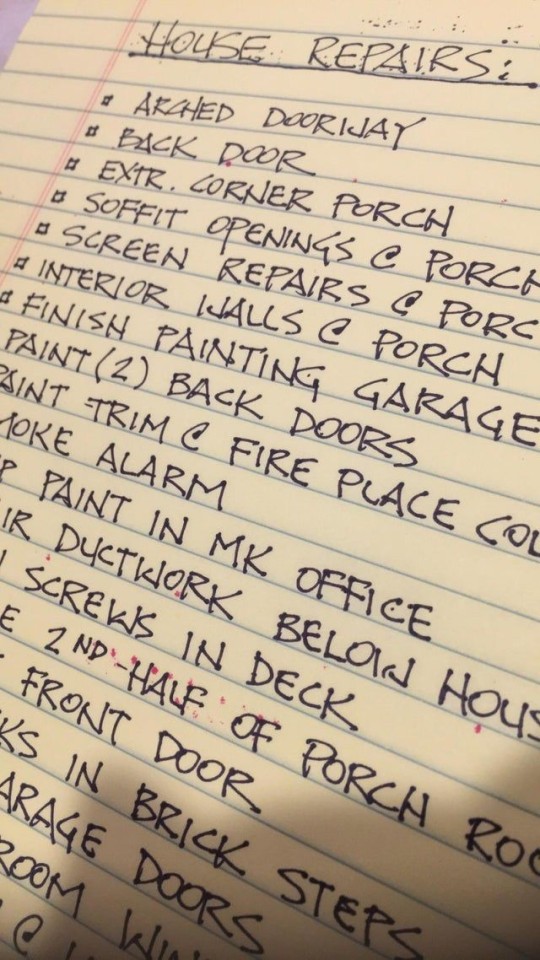 HOUSE REPAIRS:
¤ ARCHED DOORWAY
¤ BACK DOOR
¤ EXTR. CORNER PORCH
¤ SOFFIT OPENINGS @ PORCH
¤ SCREEN REPAIRS @ PORC
¤ INTERIOR WALLS @ PORCH
¤ FINISH PAINTING GARAGE
PAINT (2) BACK DOORS
AINT TRIM @ FIRE PLACE COL
MOKE ALARM
P PAINT IN MK OFFICE
IR DUCTWORK BELOW HOUS
SCREWS IN DECK
E 2ND-HALF OF PORCH ROO
FRONT DOOR
KS IN BRICK STEPS
ARAGE DOORS
ROOM WIN
@